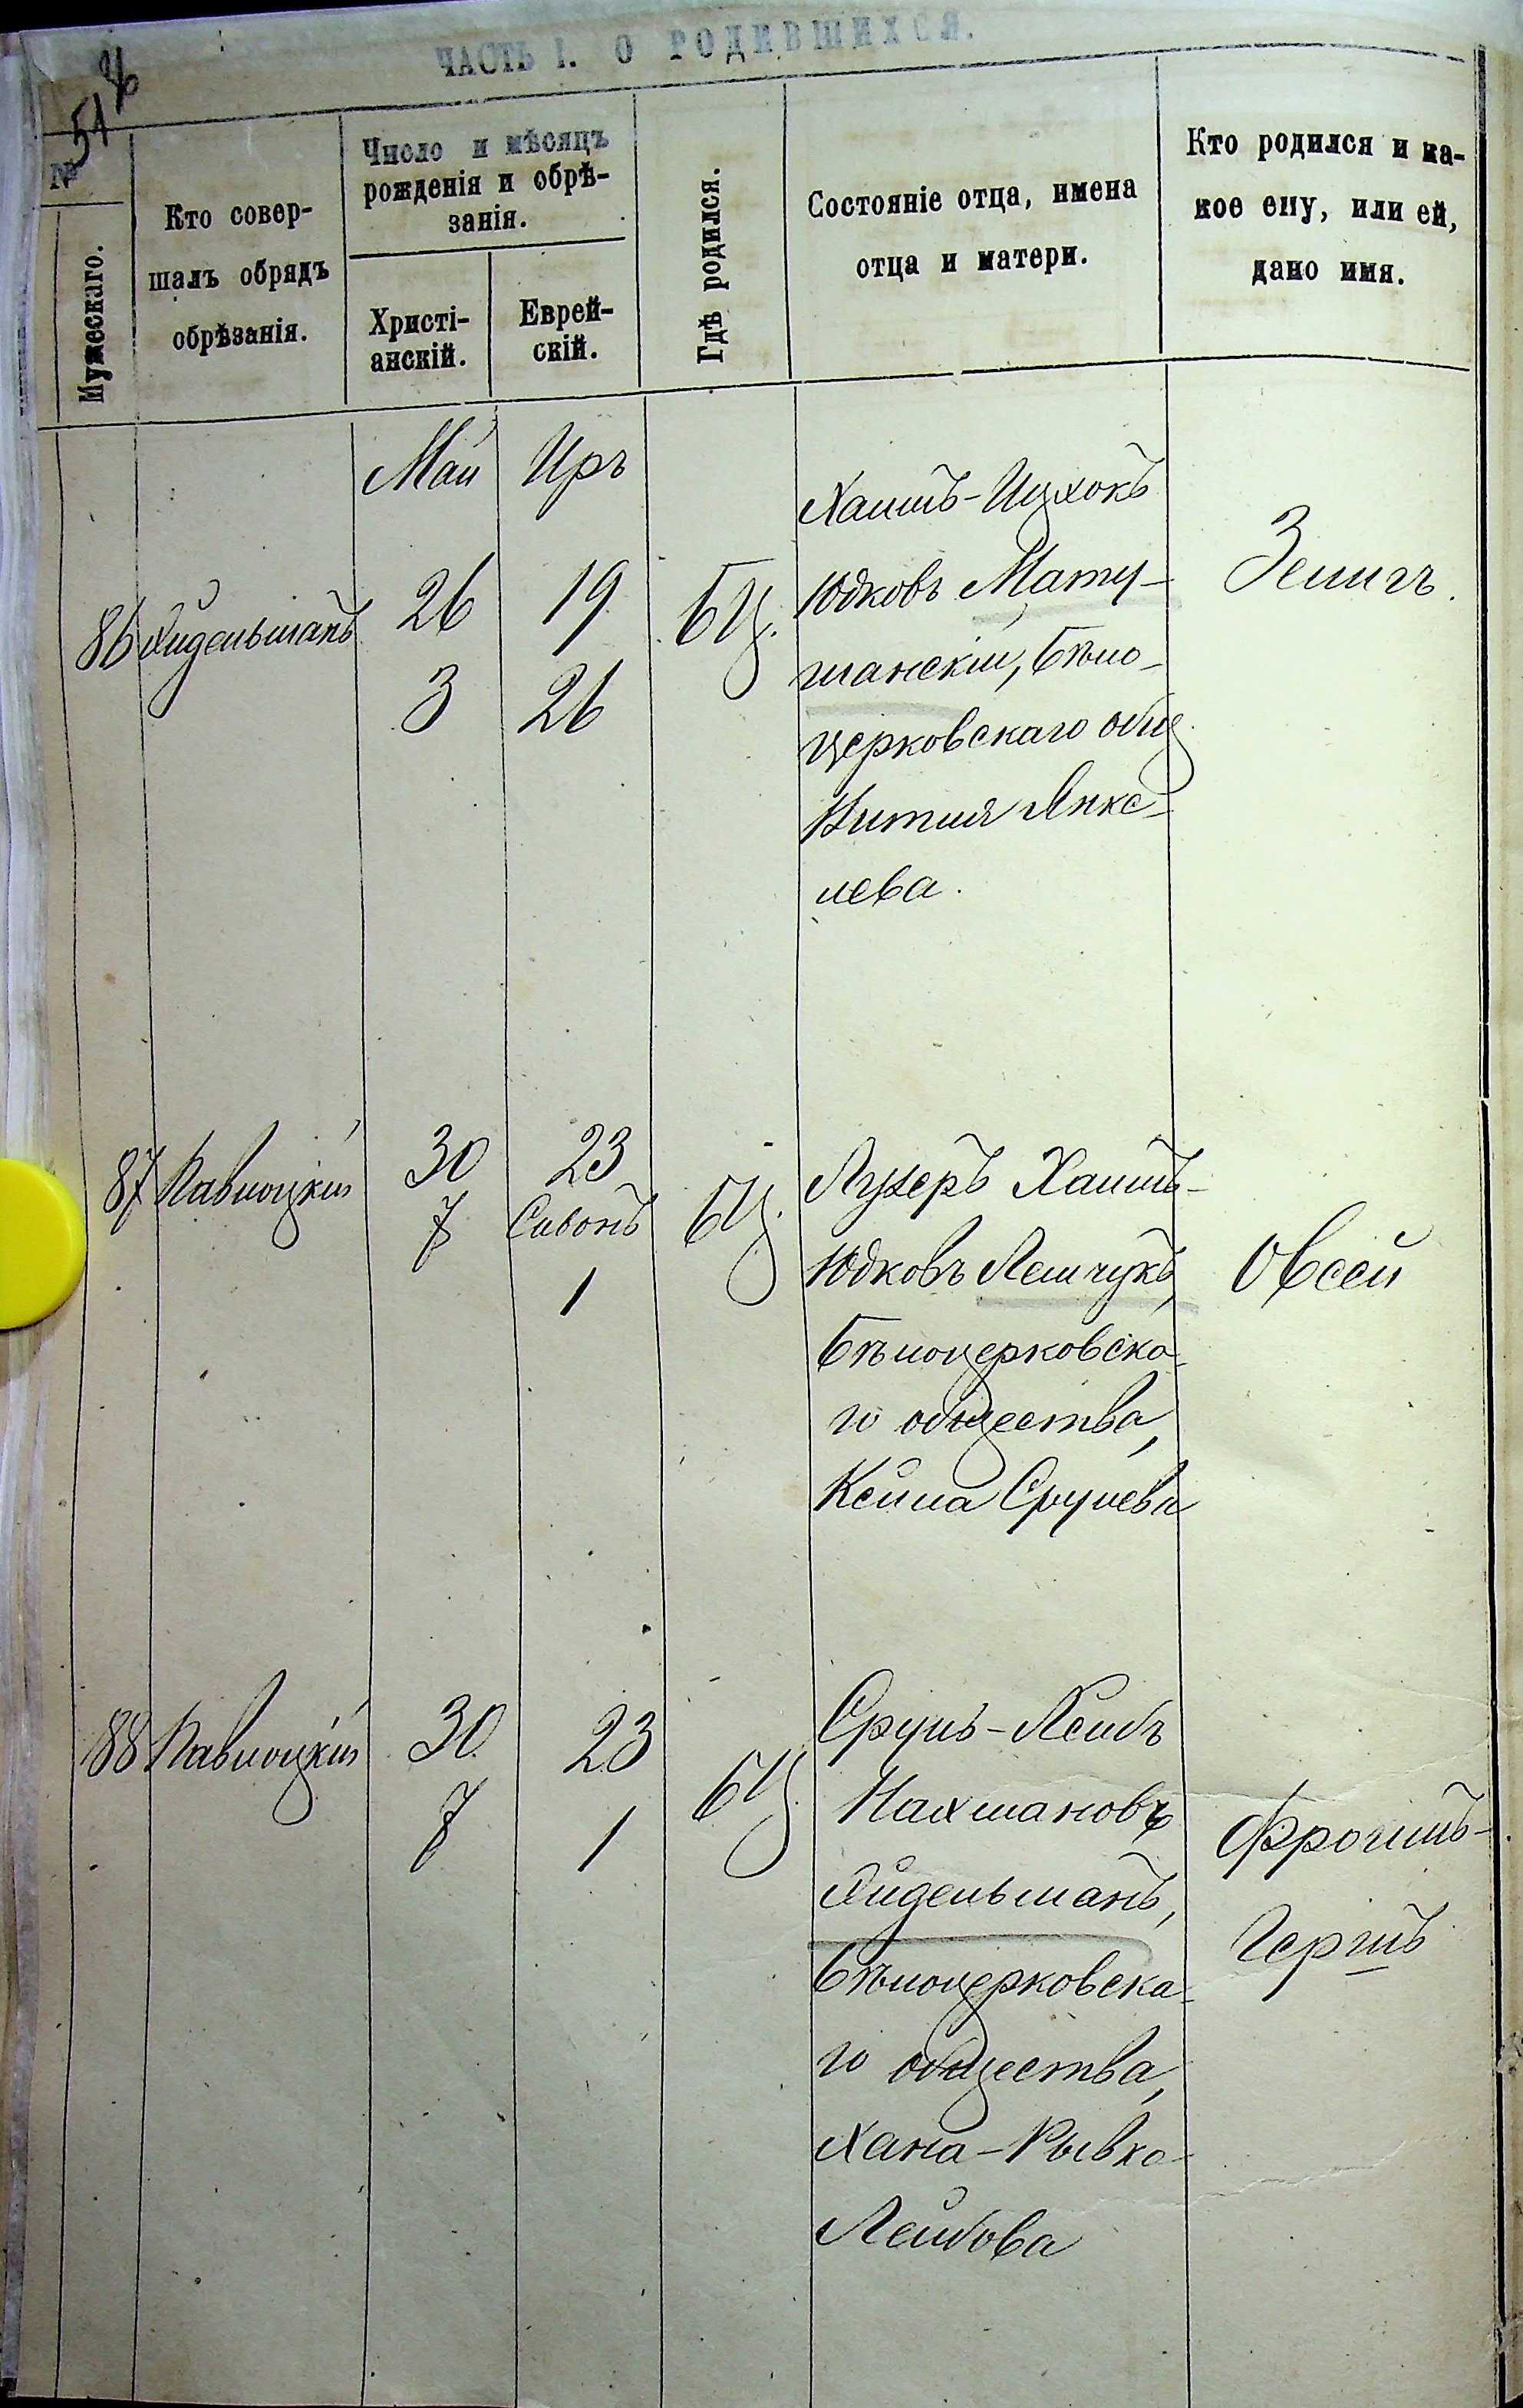 ЧАСТЬ I. О РОДИВШИХСЯ.
51
№
Мужескаго.
Кто совер-
шалъ обрядъ
обрѣзанія.
Число и мѣсяцъ
рожденія и обрѣ-
занія.
Христі-
анскій.
Еврей-
скій.
Гдѣ родился.
Состояніе отца, имена
отца и матери.
Кто родился и ка-
кое ему, или ей,
дано имя.
Май Иръ
86 26 19 БЦ.
3 26
Хаимъ-Ицхокъ
Юдковъ Мату-
шанскій, Бѣло-
церковскаго общ.
Янке-
лева.
Зелигъ.
87 Павлоцкій 30 23 БЦ.
7 Сивонъ
1
Лузеръ Хаимъ-
Юдковъ Лешчукъ,
Бѣлоцерковска-
го общества,
Кейла Срулева
Овсей
88 Павлоцкій 30 23 БЦ
7 1
Сруль-Лейбъ
Нахмановъ
Бѣлоцерковска-
го общества,
Хана-Рывка
Лейбова
Фроимъ-
Гершъ